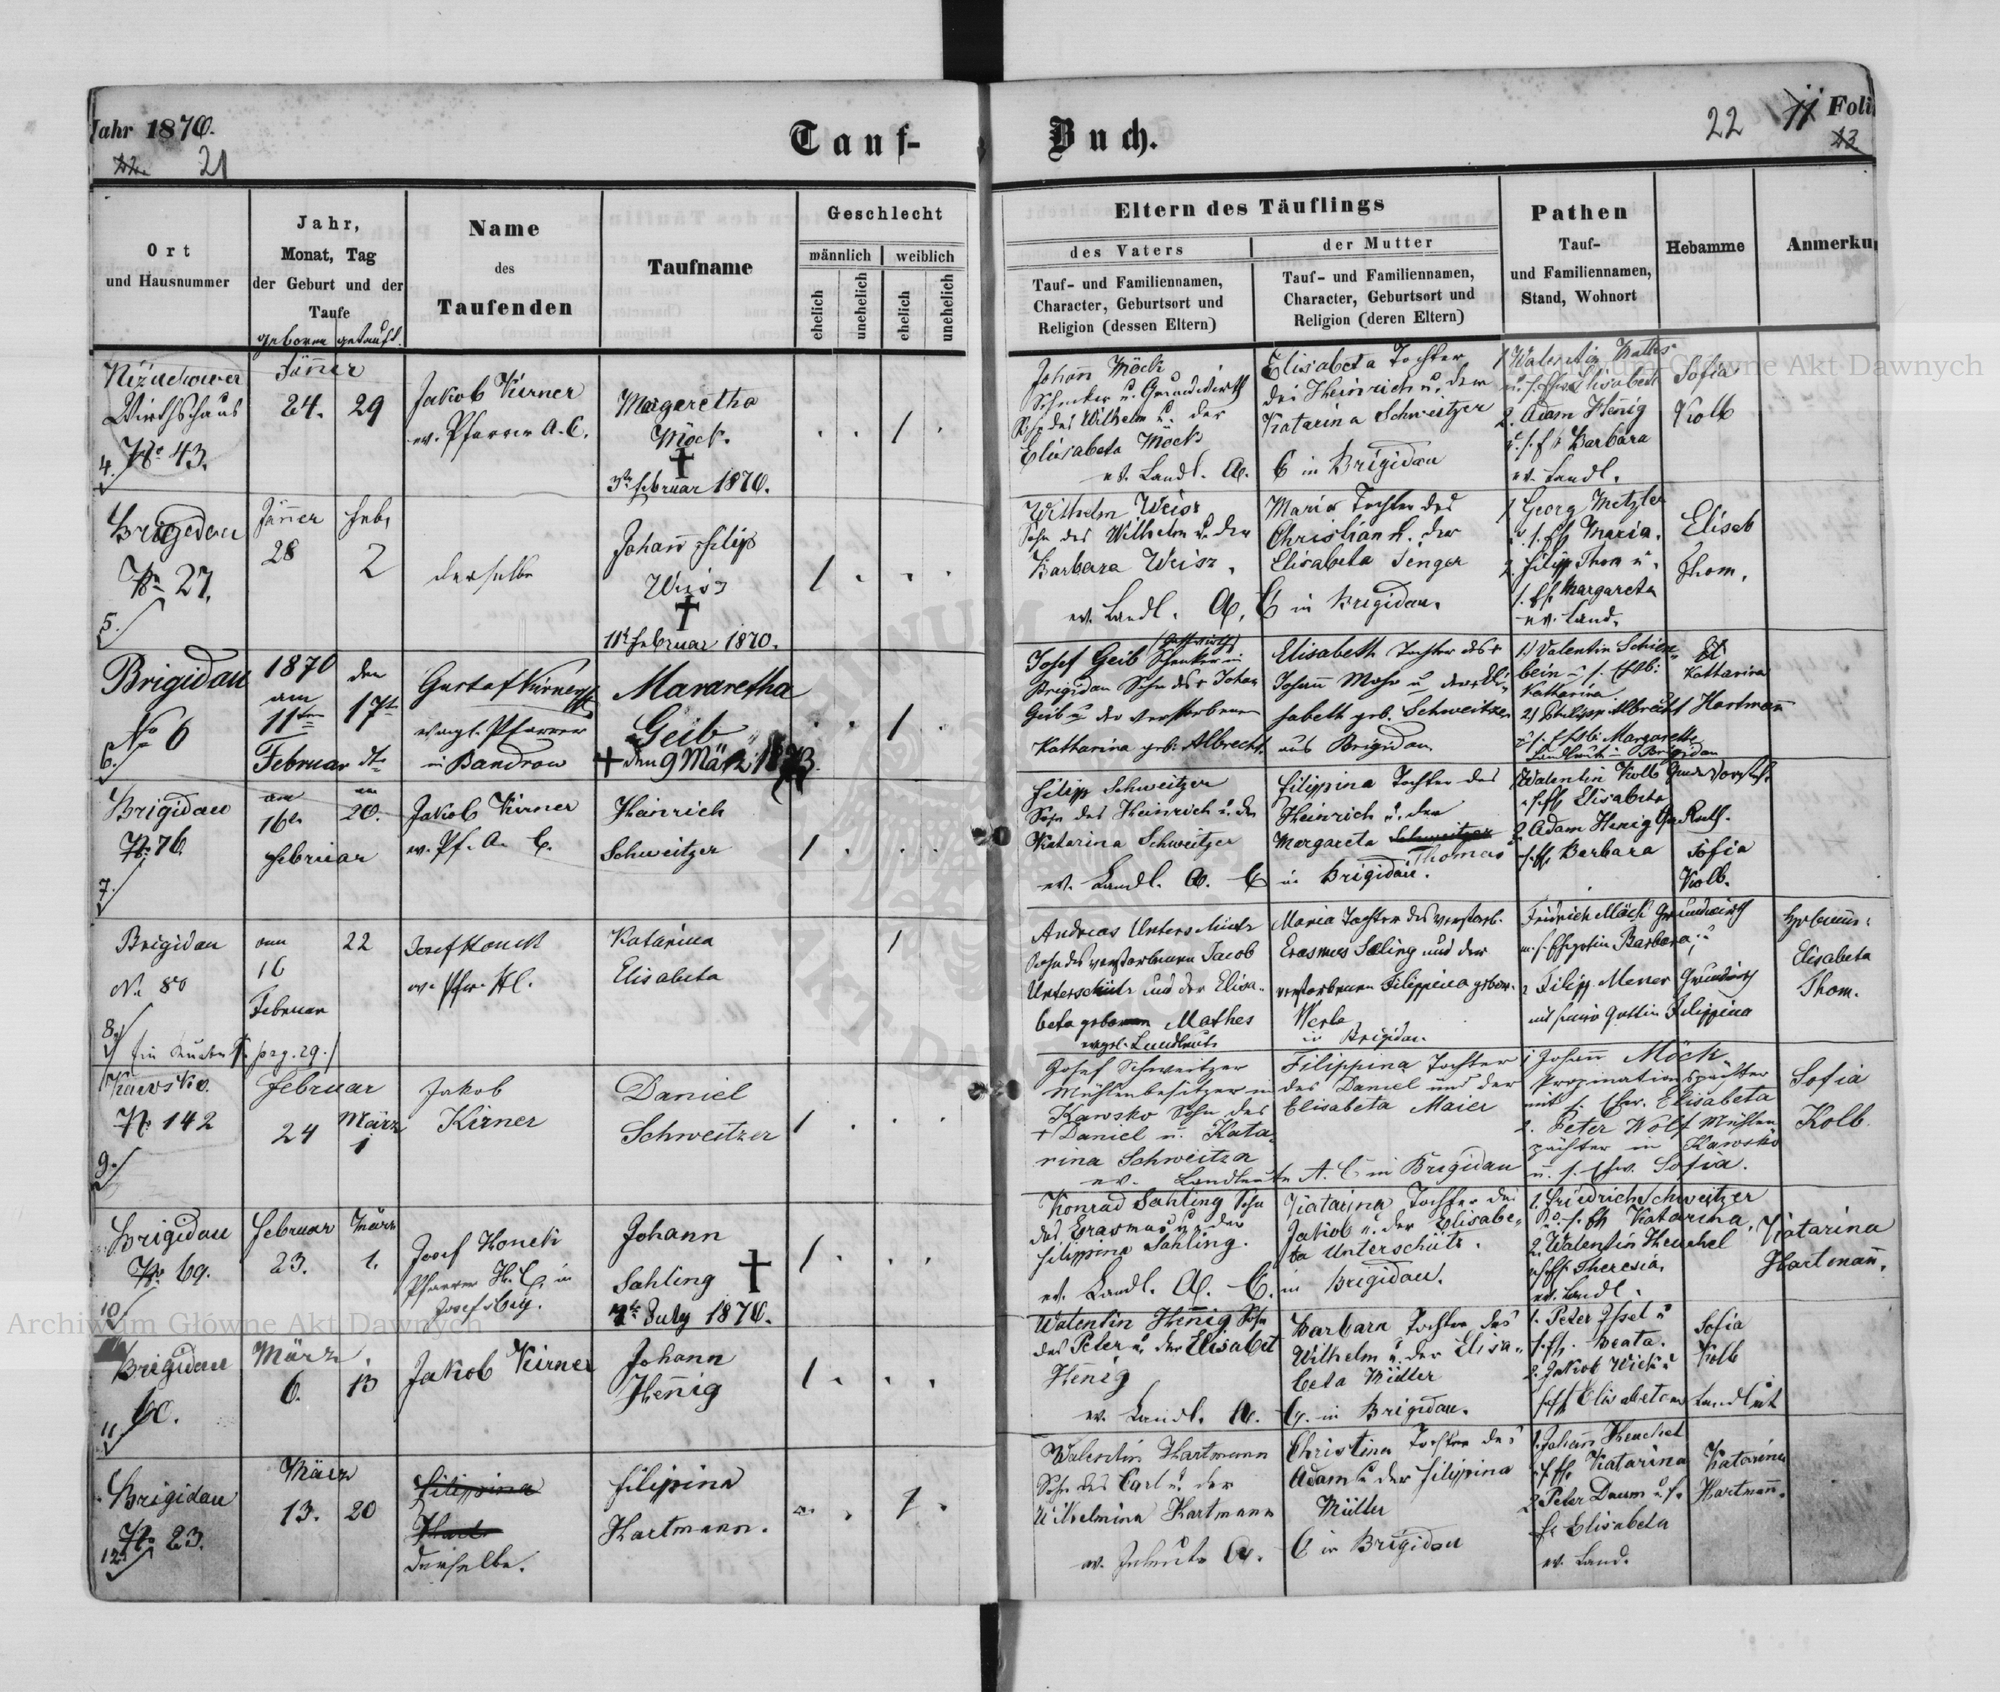 Jahr 1870.
21
Tauf-
Buch.
22
11 Foli
23
Ort
und Hausnummer
Jahr,
Monat, Tag
der Geburt und der
Taufe
geboren getauft
Name
des
Taufenden
Taufname
Geschlecht
männlich
weiblich
ehelich
unehelich
ehelich
unehelich
Eltern des Täuflings
des Vaters
Tauf- und Familiennamen,
Character, Geburtsort und
Religion (dessen Eltern)
der Mutter
Tauf- und Familiennamen,
Character, Geburtsort und
Religion (deren Eltern)
Pathen
Tauf-
und Familiennamen,
Stand, Wohnort
Hebamme
Anmerku
Wirthschaus
No 43.
4.
Jänner
24. 29
Jakob Kirner
ev. Pfarrer A. C.
Margaretha
Möck.
†
3te februar 1870.
Johann Möck
Schenker u. Grundwirth
Sohn des Wilhelm u. der
Elisabeta Möck
ev. Landl. A.
Elisabeta Tochter
des Heinrich u. der
Katarina Schweitzer
C in Brigidau
1 Walentin
Elisabeth
2. Adam Hennig
Barbara
ev. Landl.
Sofia
Kolb
Brigidau
No 27.
5.
Jänner Feb.
28 2
derselbe
Johann Filip
Weisz
†
11te februar 1870.
Wilhelm Weisz
Sohn des Wilhelm u. der
Barbara Weisz.
ev. Landl. A.
Maria Tochter des
Christian u. der
Elisabeta Senger
C in Brigidau.
1 Georg Metzler
Maria.
2. Filipp Thom u.
Margareta
ev. Land.
Elisab
Thom.
Brigidau
No 6
6.
1870 den
am
11ten 17t
Februar dto
Gustaf Kirner
evagl. Pfarrer
in Bandrow
Mararetha
Geib
† den 9 März 1873.
Josef Geib Schenker in
(Gastwirth)
Brigidau Sohn des † Johan
Geib u der verstorbenen
Katharina geb: Albrecht.
Elisabeth Tochter des †
Johann Mohr u der Eli-
sabeth geb. Schweitzer
aus Brigidau
1) Valentin Schien-
bein u s. Ehlb:
Katharina
2) Philipp Albrecht
u s. Ehlb: Margarethe
Landleute in Brigidau
Katharina
Hartmann
Brigidau
No 76
7.
am am
16te 20.
februar
Jakob Kirner
ev. Pf. A. C.
Heinrich
Schweitzer
Filipp Schweitzer
Sohn des Heinrich u. der
Katarina Schweitzer
ev. Landl. A. C
Filippina Tochter des
Heinrich u. der
Margareta Schweitzer
Thomas
in Brigidau.
Walentin Kolb
Elisabeta
2 Adam Henig
Barbara
Sofia
Kolb.
Brigidau
No. 80
8.
am 22
16
Februar
pag. 29.
Josef Honek
ev. Pfr. Hl.
Katarina
Elisabeta
Andreas Unterschütz
Sohn des verstorbenen Jacob
Unterschütz und der Elisa-
beta geboren Mathes
evagel. Landleute
Maria Tochter des verstorb.
Erasmus Saling und der
verstorbenen Filippina gebor.
Werle
in Brigidau.
Fridrich Möck Grundwirth
Barbara;
2 Filipp Mener Grundwirth
mit seiner Gattin Filippina
Elisabeta
Thom.
Kawsko.
No 142
9.
februar
24 März
1
Jakob
Kirner
Daniel
Schweitzer
Josef Schweitzer
Mühlenbesitzer in
Kawsko Sohn des
† Daniel u. Kata-
rina Schweitzer
ev. Landleute
Filippina Tochter
des Daniel und der
Elisabeta Maier
A. C in Brigidau
1 Johann Möck
Propinationspächter
mit s. Ehw. Elisabeta
2. Peter Wolf Mühlen
pächter in Kawsko
u. s. Ehw. Sofia.
Sofia
Kolb.
Brigidau
No 69.
10
februar März
23. 1.
Josef Honek
Pfarrer H. C. in
Josefsberg.
Johann
Sahling †
July 1870.
Konrad Sahling Sohn
des Erasmus u. der
Filippina Sahling.
ev. Landl. A. C.
Katarina Tochter des
Jakob u. der Elisabe-
ta Unterschütz.
in Brigidau.
1. Friedrich Schweitzer
Katarina.
2. Walentin Heuchel
Theresia,
ev. Landl.
Katarina
Hartmann.
Brigidau
60.
11
März
6. 13
Jakob Kirner
Johann
Hennig
Walentin Hennig Sohn
des Peter u. der Elisabet
Hennig
ev. Landl. A.
Barbara Tochter des
Wilhelm u. der Elisa-
beta Müller
C. in Brigidau.
1. Peter Issel u
Beata.
2. Jakob
Elisabeta
Landleut
Sofia
Kolb
Brigidau
No 23.
12.
März
13. 20
Filippina
Hart
derselbe.
Filippina
Hartmann.
Walentin Hartmann
Sohn des Carl u. der
Wilhelmina Hartmann
Christina Tochter des
Adam u der Filippina
Müller
C in Brigidau
1. Johann Heuchel
Katarina
2. Peter Daum u. s.
Elisabeta
ev. Land.
Katarina
Hartmann.
Archiwum Główne Akt Dawnych